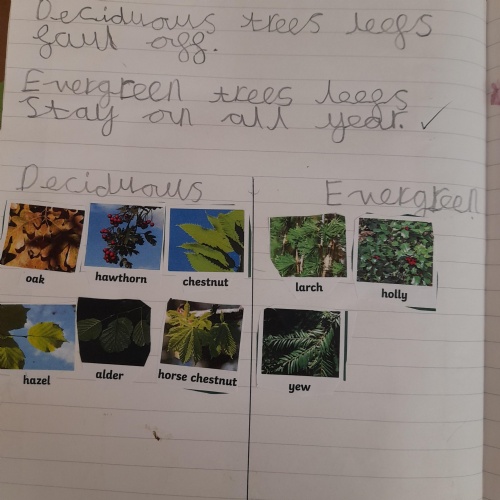 Deciduous trees leefs
faul off.
Evergreen trees leefs
Stay on all year. ✓
Deciduous Evergreen
oak hawthorn chestnut larch holly
hazel alder horse chestnut yew